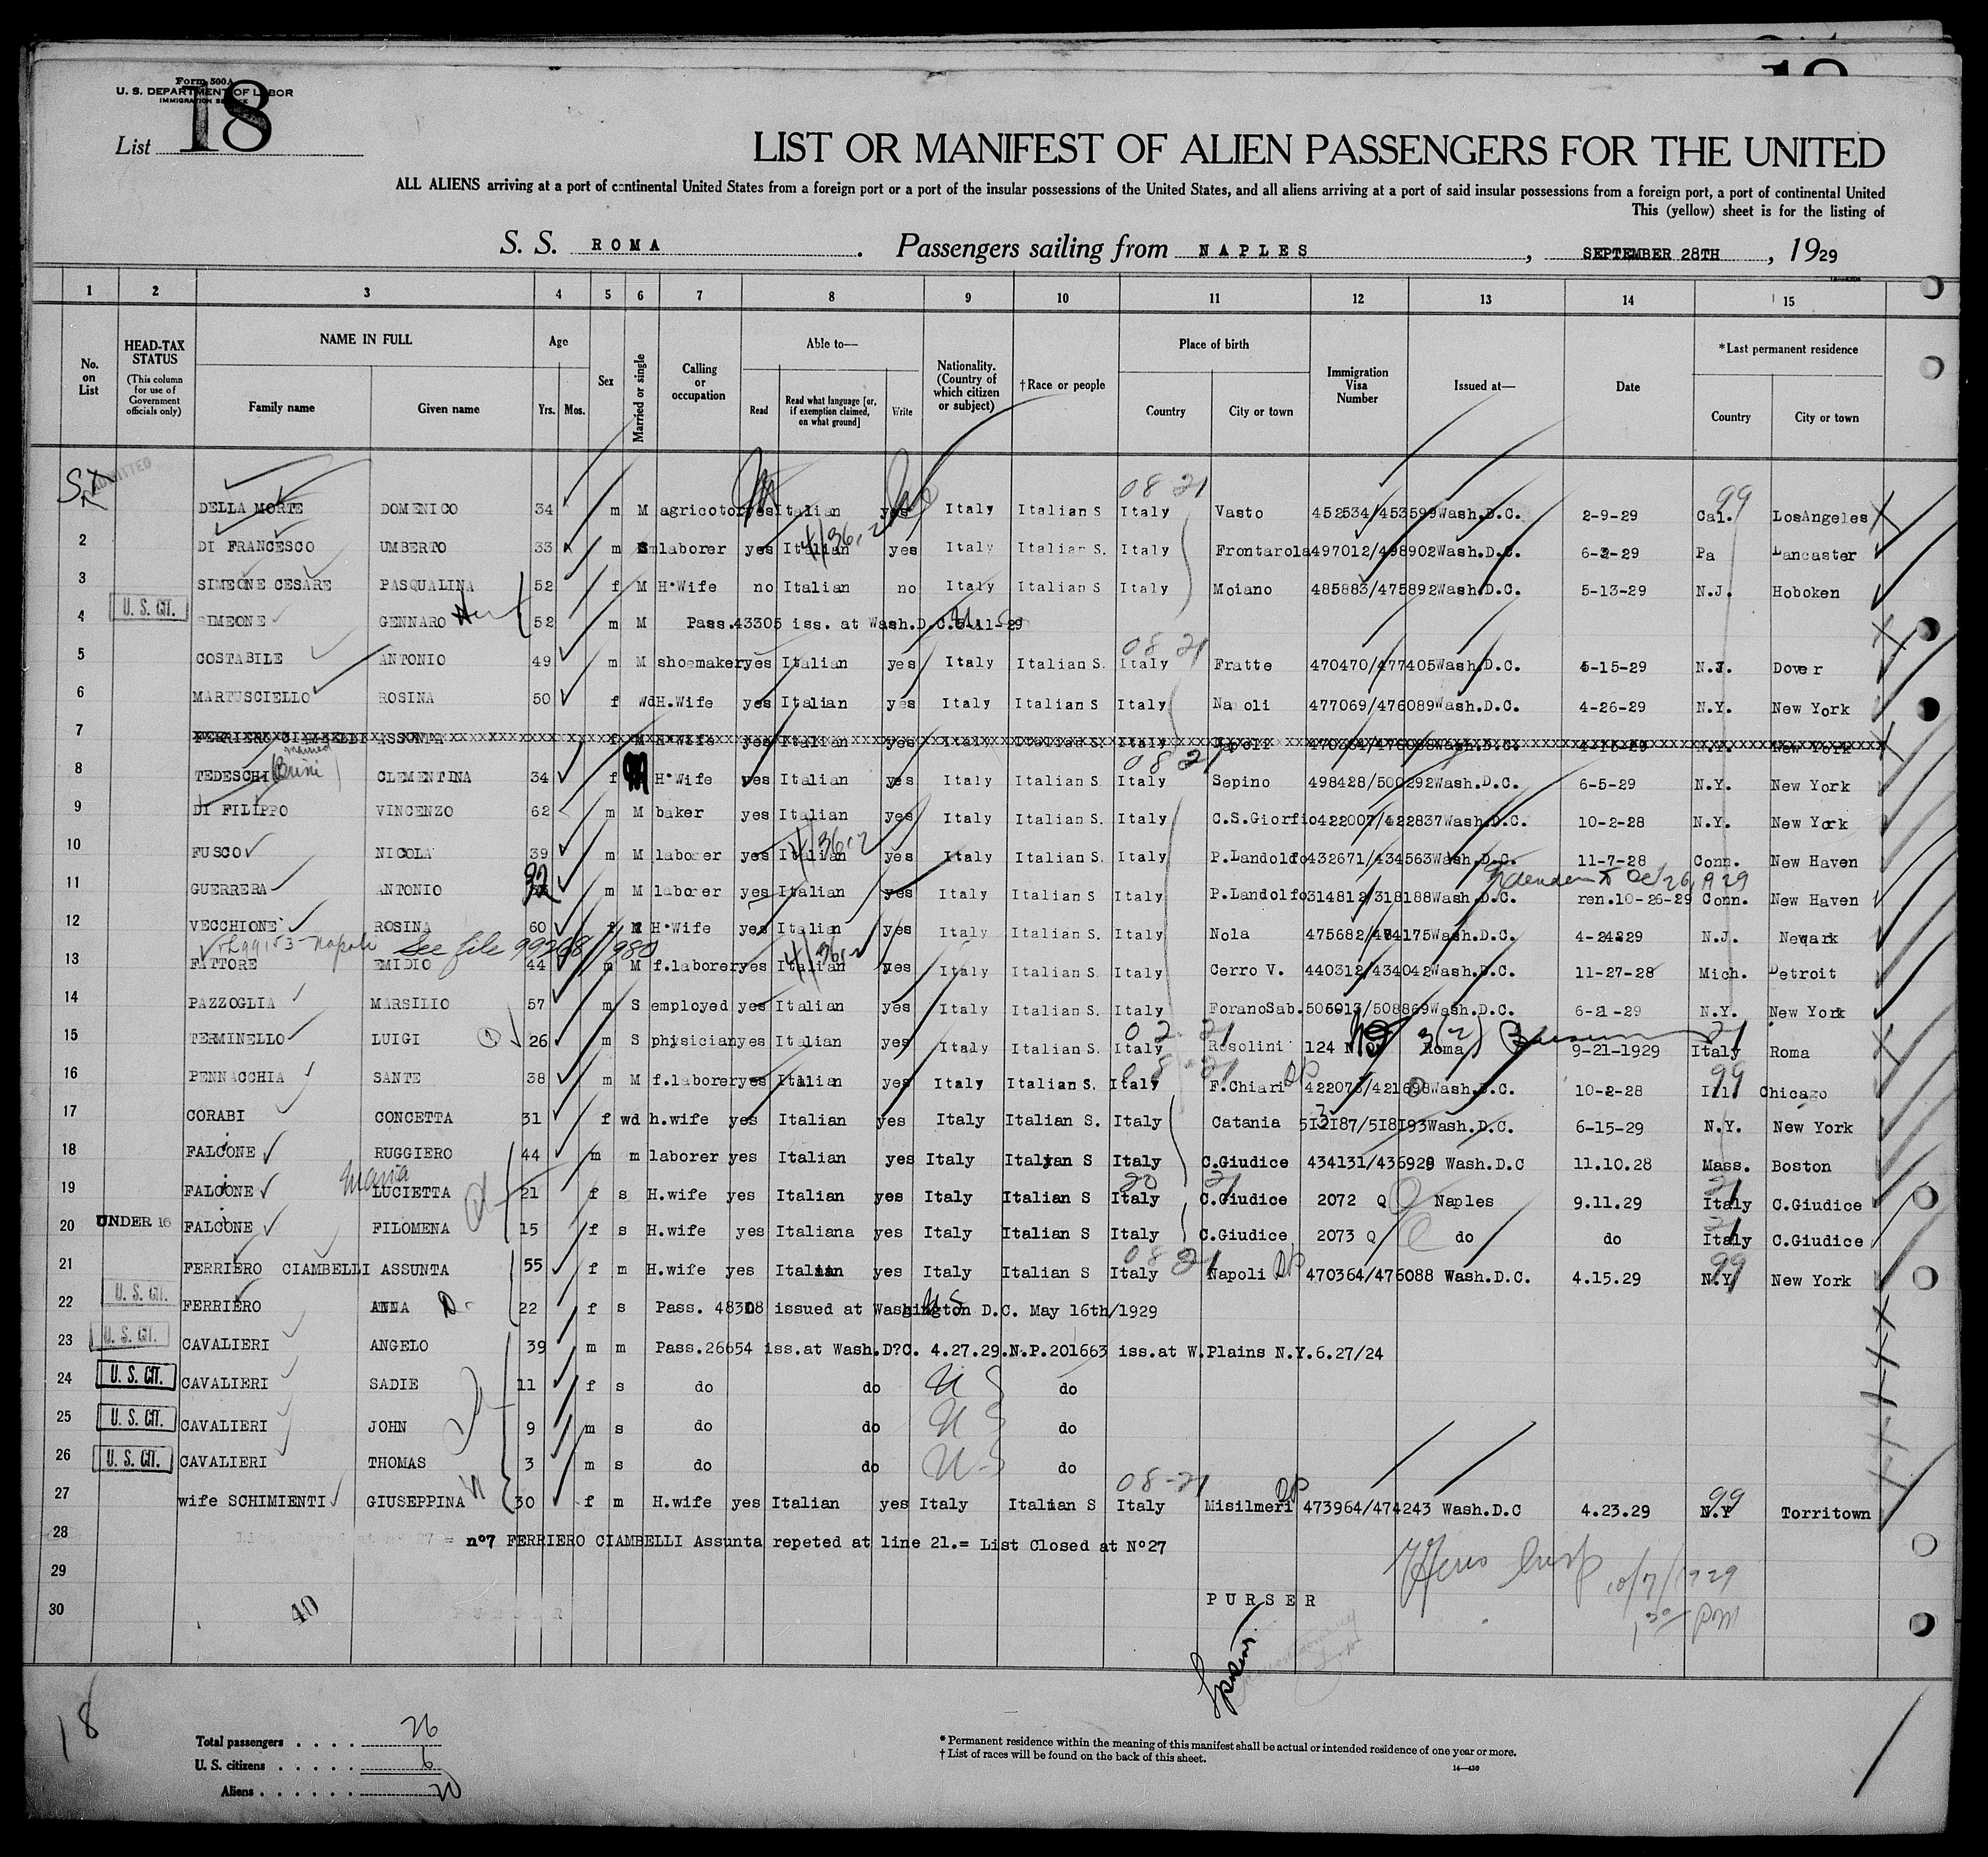 Form 500A
U. S. DEPARTMENT OF LABOR
IMMIGRATION SERVICE
List 18
LIST OR MANIFEST OF ALIEN PASSENGERS FOR THE UNITED
ALL ALIENS arriving at a port of continental United States from a foreign port or a port of the insular possessions of the United States, and all aliens arriving at a port of said insular possessions from a foreign port, a port of continental United
This (yellow) sheet is for the listing of
S. S. ROMA. Passengers sailing from NAPLES, SEPTEMBER 28TH, 1929
1 2 3 4 5 6 7 8 9 10 11 12 13 14 15
No. on List
HEAD-TAX STATUS (This column for use of Government officials only)
NAME IN FULL Family name Given name
Age Yrs. Mos.
Sex
Married or single
Calling or occupation
Able to— Read Read what language [or, if exemption claimed, on what ground] Write
Nationality. (Country of which citizen or subject)
†Race or people
Place of birth Country City or town
Immigration Visa Number
Issued at—
Date
*Last permanent residence Country City or town
ADMITTED
08 21 99
DELLA MORTE DOMENICO 34 m M agricotor yes Italian yes Italy Italian S Italy Vasto 452534/453599 Wash.D.C. 2-9-29 Cal. LosAngeles
4/36,2
2 DI FRANCESCO UMBERTO 33 m S laborer yes Italian yes Italy Italian S. Italy Frontarola 497012/498902 Wash.D.C. 6-3-29 Pa Lancaster
3 SIMEONE CESARE PASQUALINA 52 f M H·Wife no Italian no Italy Italian S Italy Moiano 485883/475892 Wash.D.C. 5-13-29 N.J. Hoboken
4 U. S. CIT. SIMEONE GENNARO 52 m M Pass.43305 iss. at Wash.D.C.5-11-29
08 21
5 COSTABILE ANTONIO 49 m M shoemaker yes Italian yes Italy Italian S. Italy Fratte 470470/477405 Wash.D.C. 4-15-29 N.J. Dover
6 MARTUSCIELLO ROSINA 50 f Wd H.Wife yes Italian yes Italy Italian S Italy Napoli 477069/476089 Wash.D.C. 4-26-29 N.Y. New York
7 FERRIERO CIAMBELLI ASSUNTA f M H·Wife yes Italian yes Italy Italian S Italy Napoli 470364/476088 Wash.D.C. 4-15-29 N.Y. New York
married 08 21
8 TEDESCHI (Brini) CLEMENTINA 34 f M H·Wife yes Italian yes Italy Italian S Italy Sepino 498428/500292 Wash.D.C. 6-5-29 N.Y. New York
9 DI FILIPPO VINCENZO 62 m M baker yes Italian yes Italy Italian S. Italy C.S.Giorfio 422007/422837 Wash.D.C. 10-2-28 N.Y. New York
4/36,2
10 FUSCO NICOLA 39 m M laborer yes Italian yes Italy Italian S. Italy P.Landolfo 432671/434563 Wash.D.C. 11-7-28 Conn. New Haven
Oct 26, 1929
11 GUERRERA ANTONIO 32 m M laborer yes Italian yes Italy Italian S Italy P.Landolfo 314812/318188 Wash.D.C. ren.10-26-29 Conn. New Haven
12 VECCHIONE ROSINA 60 f M H·Wife yes Italian yes Italy Italian S. Italy Nola 475682/474175 Wash.D.C. 4-24-29 N.J. Newark
Napoli See file 99268/980 4/36,2
13 FATTORE EMIDIO 44 m M f.laborer yes Italian yes Italy Italian S. Italy Cerro V. 440312/434042 Wash.D.C. 11-27-28 Mich. Detroit
14 PAZZOGLIA MARSILIO 57 m S employed yes Italian yes Italy Italian S. Italy ForanoSab. 505013/508869 Wash.D.C. 6-21-29 N.Y. New York
02-21 3(2) 21
15 TERMINELLO LUIGI 26 m S phisician yes Italian yes Italy Italian S. Italy Rosolini 124 NQ Roma 9-21-1929 Italy Roma
08-21 DP 99
16 PENNACCHIA SANTE 38 m M f.laborer yes Italian yes Italy Italian S. Italy F.Chiari 422073/421698 Wash.D.C. 10-2-28 Ill. Chicago
17 CORABI CONCETTA 31 f wd h.wife yes Italian yes Italy Italian S. Italy Catania 512187/518193 Wash.D.C. 6-15-29 N.Y. New York
18 FALCONE RUGGIERO 44 m m laborer yes Italian yes Italy Italian S Italy C.Giudice 434131/436929 Wash.D.C 11.10.28 Mass. Boston
Maria 20 21 21
19 FALCONE LUCIETTA 21 f s H.wife yes Italian yes Italy Italian S Italy C.Giudice 2072 Q Naples 9.11.29 Italy C.Giudice
20 UNDER 16 FALCONE FILOMENA 15 f s H.wife yes Italiana yes Italy Italian S Italy C.Giudice 2073 Q do do Italy C.Giudice
08 21 DP 99
21 FERRIERO CIAMBELLI ASSUNTA 55 f m H.wife yes Italian yes Italy Italian S Italy Napoli 470364/476088 Wash.D.C. 4.15.29 N.Y New York
22 U. S. CIT. FERRIERO ANNA 22 f s Pass. 48308 issued at Washington D.C. May 16th/1929
23 U. S. CIT. CAVALIERI ANGELO 39 m m Pass.26654 iss.at Wash.D?C. 4.27.29.N.P.201663 iss.at W.Plains N.Y.6.27/24
24 U. S. CIT. CAVALIERI SADIE 11 f s do do US do
25 U. S. CIT. CAVALIERI JOHN 9 m s do do US do
26 U. S. CIT. CAVALIERI THOMAS 3 m s do do US do
08-21 DP 99
27 wife SCHIMIENTI GIUSEPPINA 30 f m H.wife yes Italian yes Italy Italian S Italy Misilmeri 473964/474243 Wash.D.C 4.23.29 N.Y Torritown
28 n°7 FERRIERO CIAMBELLI Assunta repeted at line 21.= List Closed at N°27
29 10/7/1929
30 40 PURSER PURSER 1 30 PM
18
Total passengers . . . . 26
U. S. citizens . . . . . 6
Aliens . . . . . . 20
* Permanent residence within the meaning of this manifest shall be actual or intended residence of one year or more.
† List of races will be found on the back of this sheet.
14—430